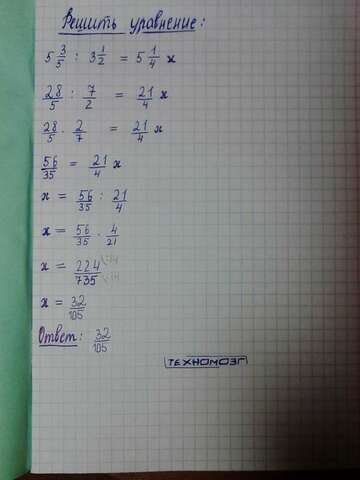 Решить уравнение:
5 3/5 : 3 1/2 = 5 1/4 x
28/5 : 7/2 = 21/4 x
28/5 · 2/7 = 21/4 x
56/35 = 21/4 x
x = 56/35 : 21/4
x = 56/35 · 4/21
x = 224/735
x = 32/105
Ответ: 32/105
ТЕХНОМОЗГ